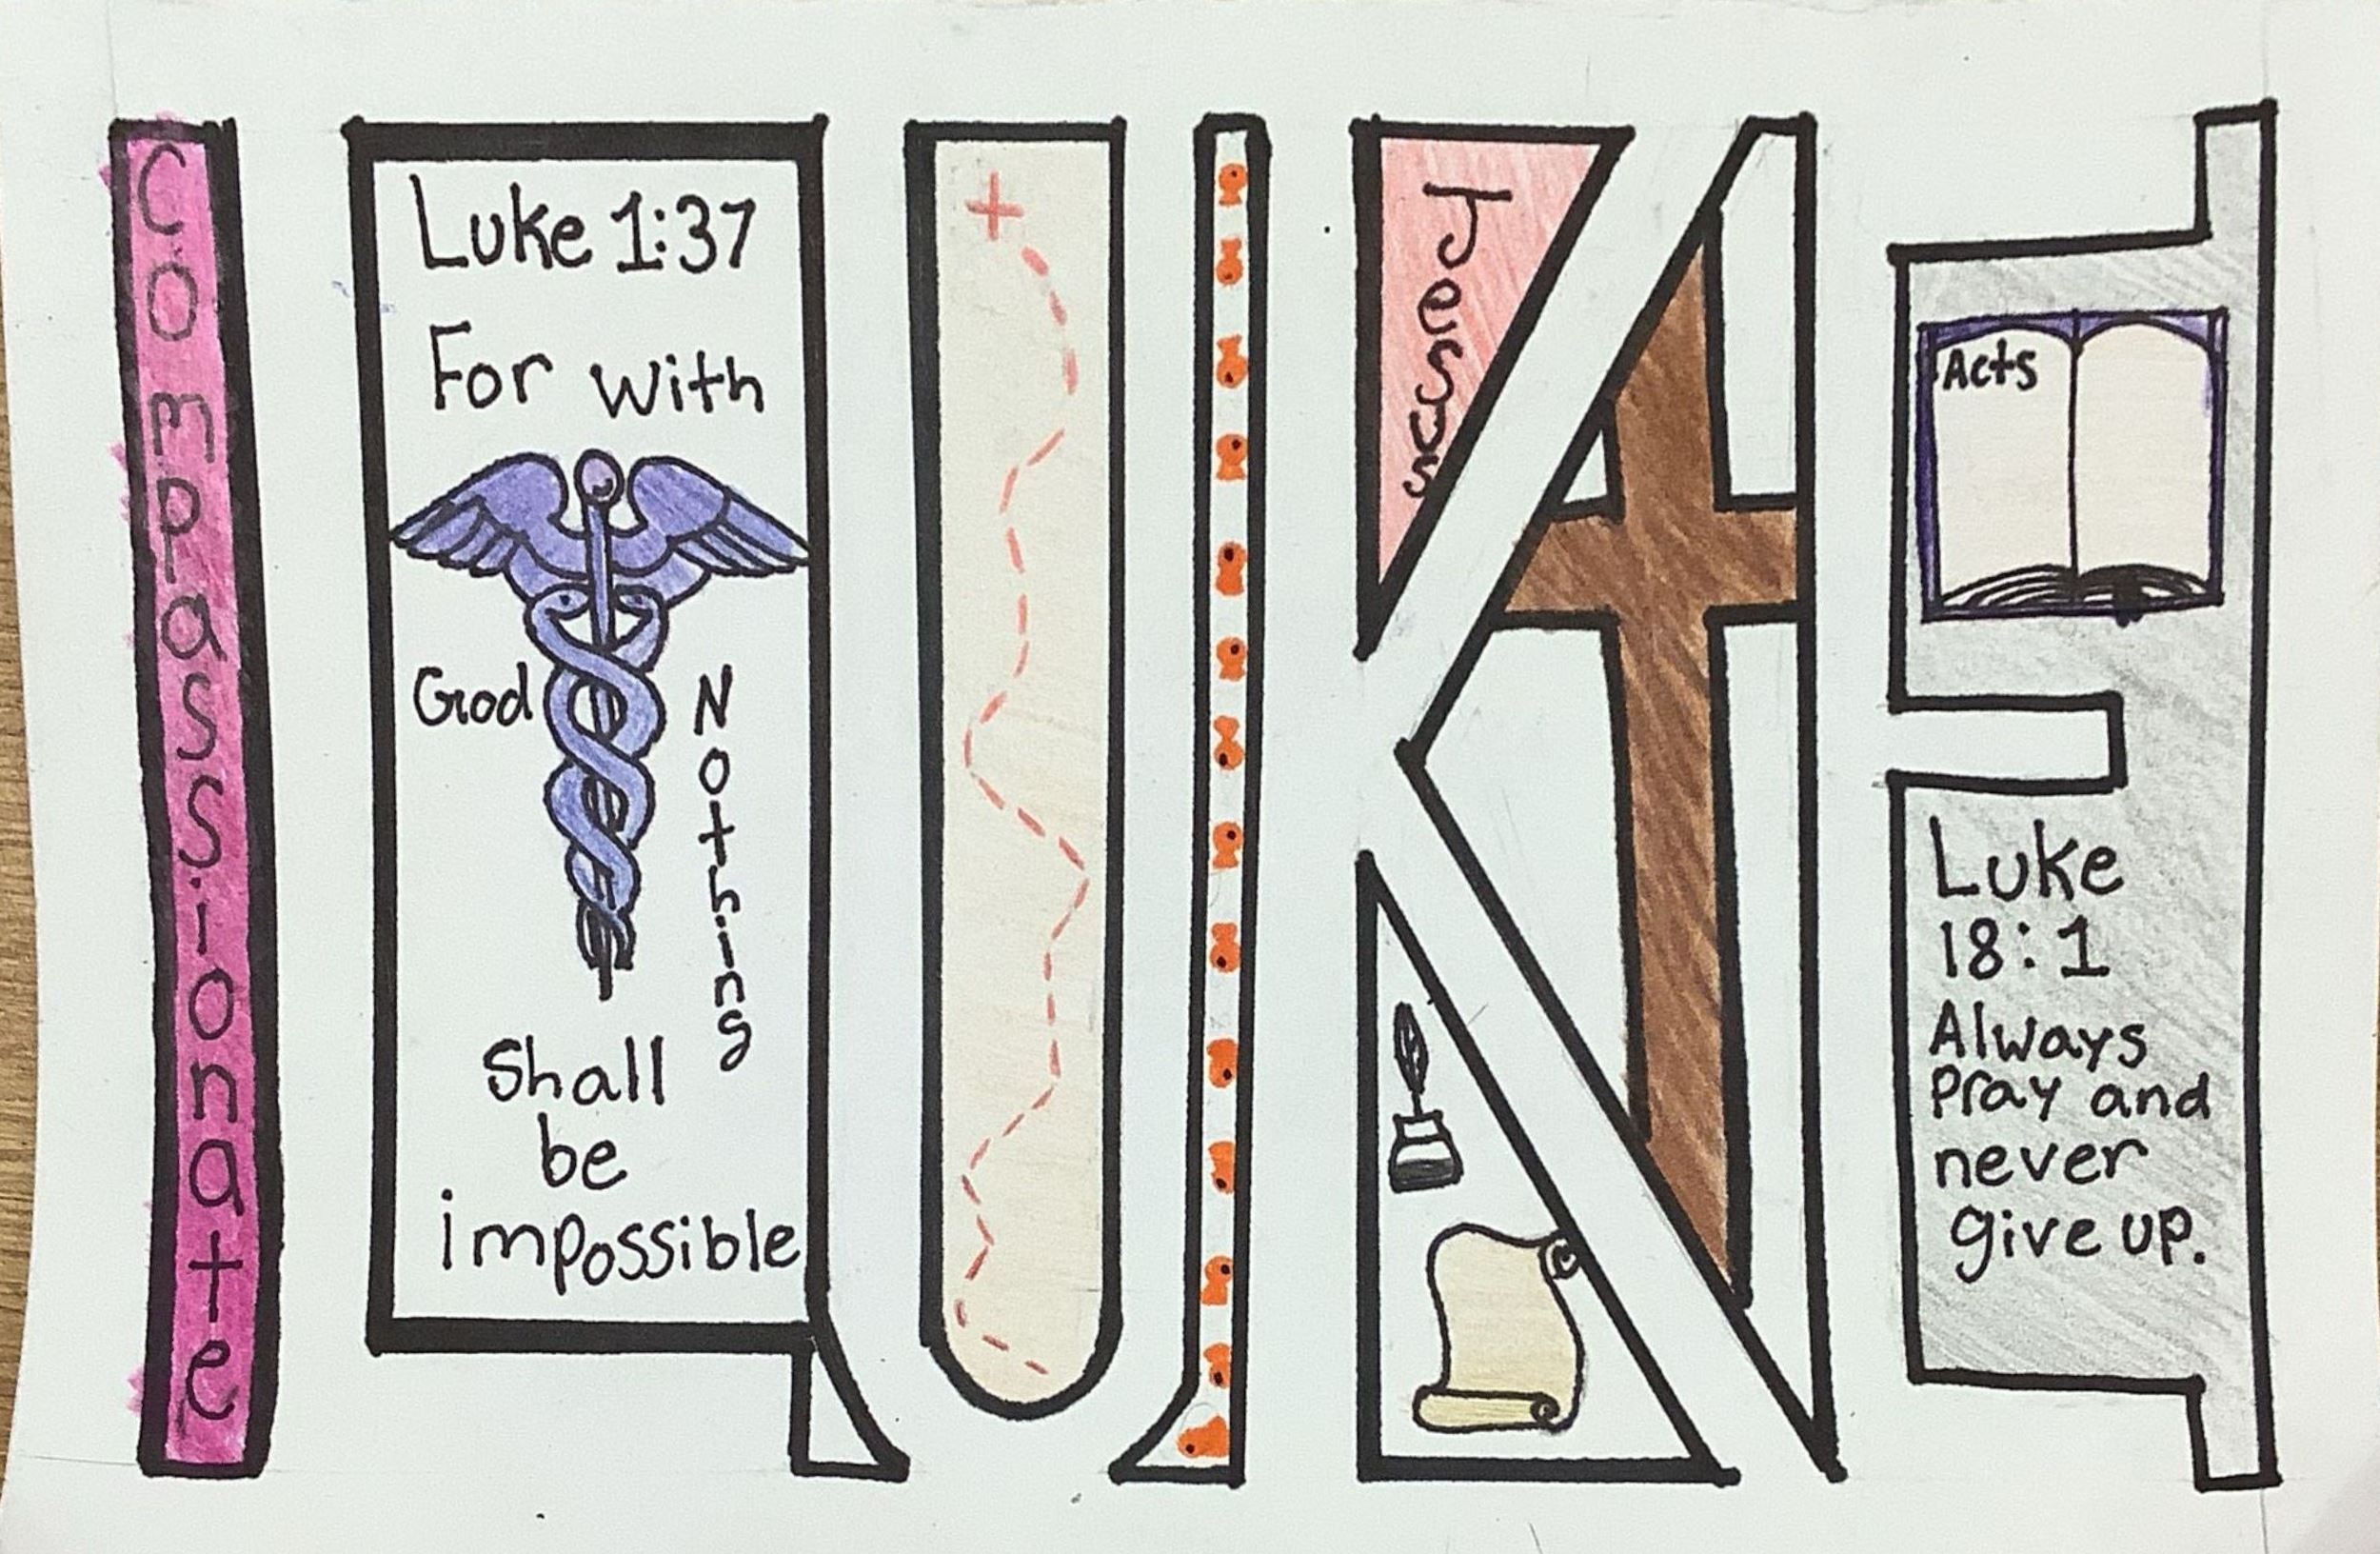 LUKE
Compassionate
Luke 1:37
For with
God
Nothing
Shall
be
impossible
Jesus
Acts
Luke
18:1
Always
pray and
never
give up.